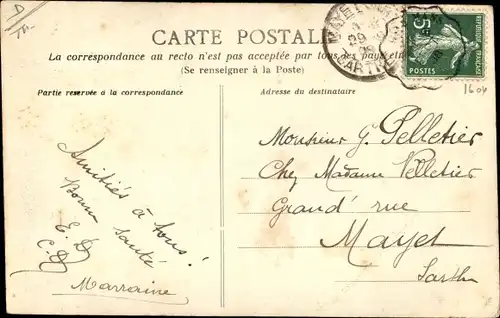 D
CARTE POSTALE
La correspondance au recto n'est pas acceptée par tous les pays
(Se renseigner à la Poste)
Partie réservée à la correspondance
Adresse du destinataire
5
POSTES
1604
Amitiés à tous!
Bonne santé
E. D
C. D
Marraine
Monsieur G. Pelletier
Chez Madame Velletier
Grand' rue
Mayet
Sarthe